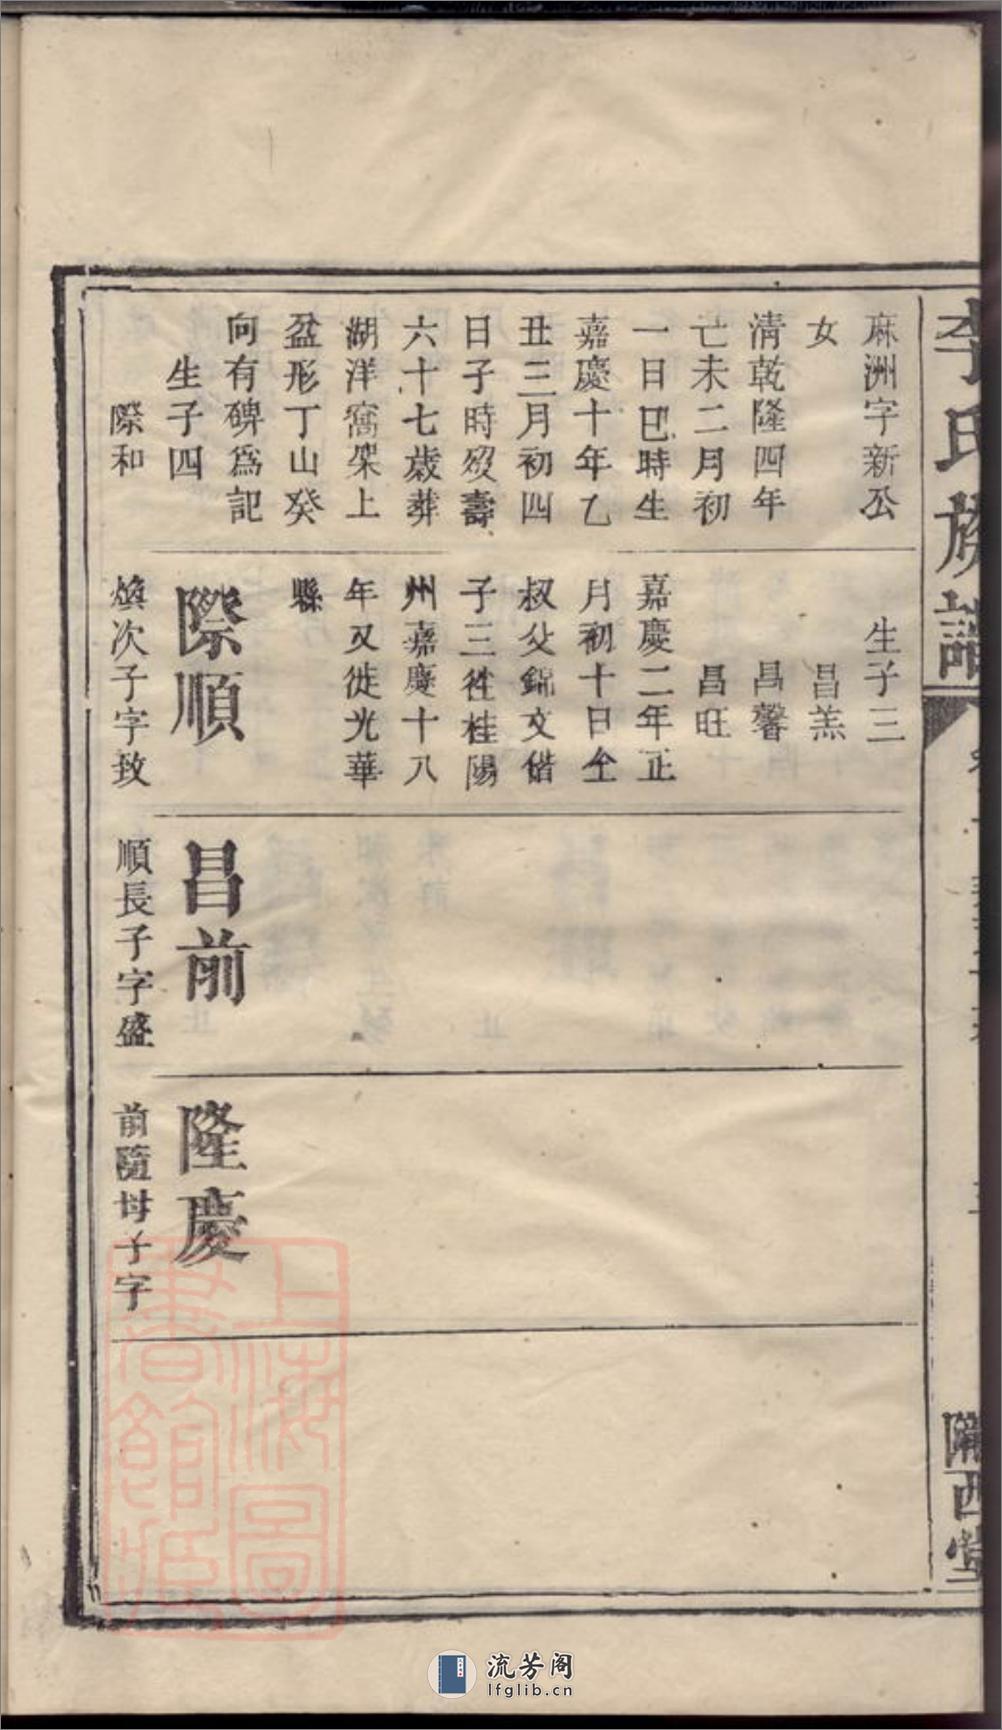 李氏族譜
隴西堂
麻洲字新公
女
清乾隆四年
亡未二月初
一日巳時生
嘉慶十年乙
丑三月初四
日子時歿壽
六十七歲葬
湖洋窩架上
盆形丁山癸
向有碑爲記
生子四
際和
生子三
昌羔
昌馨
昌旺
嘉慶二年正
月初十日仝
叔父錦文偕
子三徃桂陽
州嘉慶十八
年又徙光華
縣
際順
煥次子字致
昌前
順長子字盛
隆慶
前隨母子字
上海圖
書館藏
流芳阁
lfglib.cn